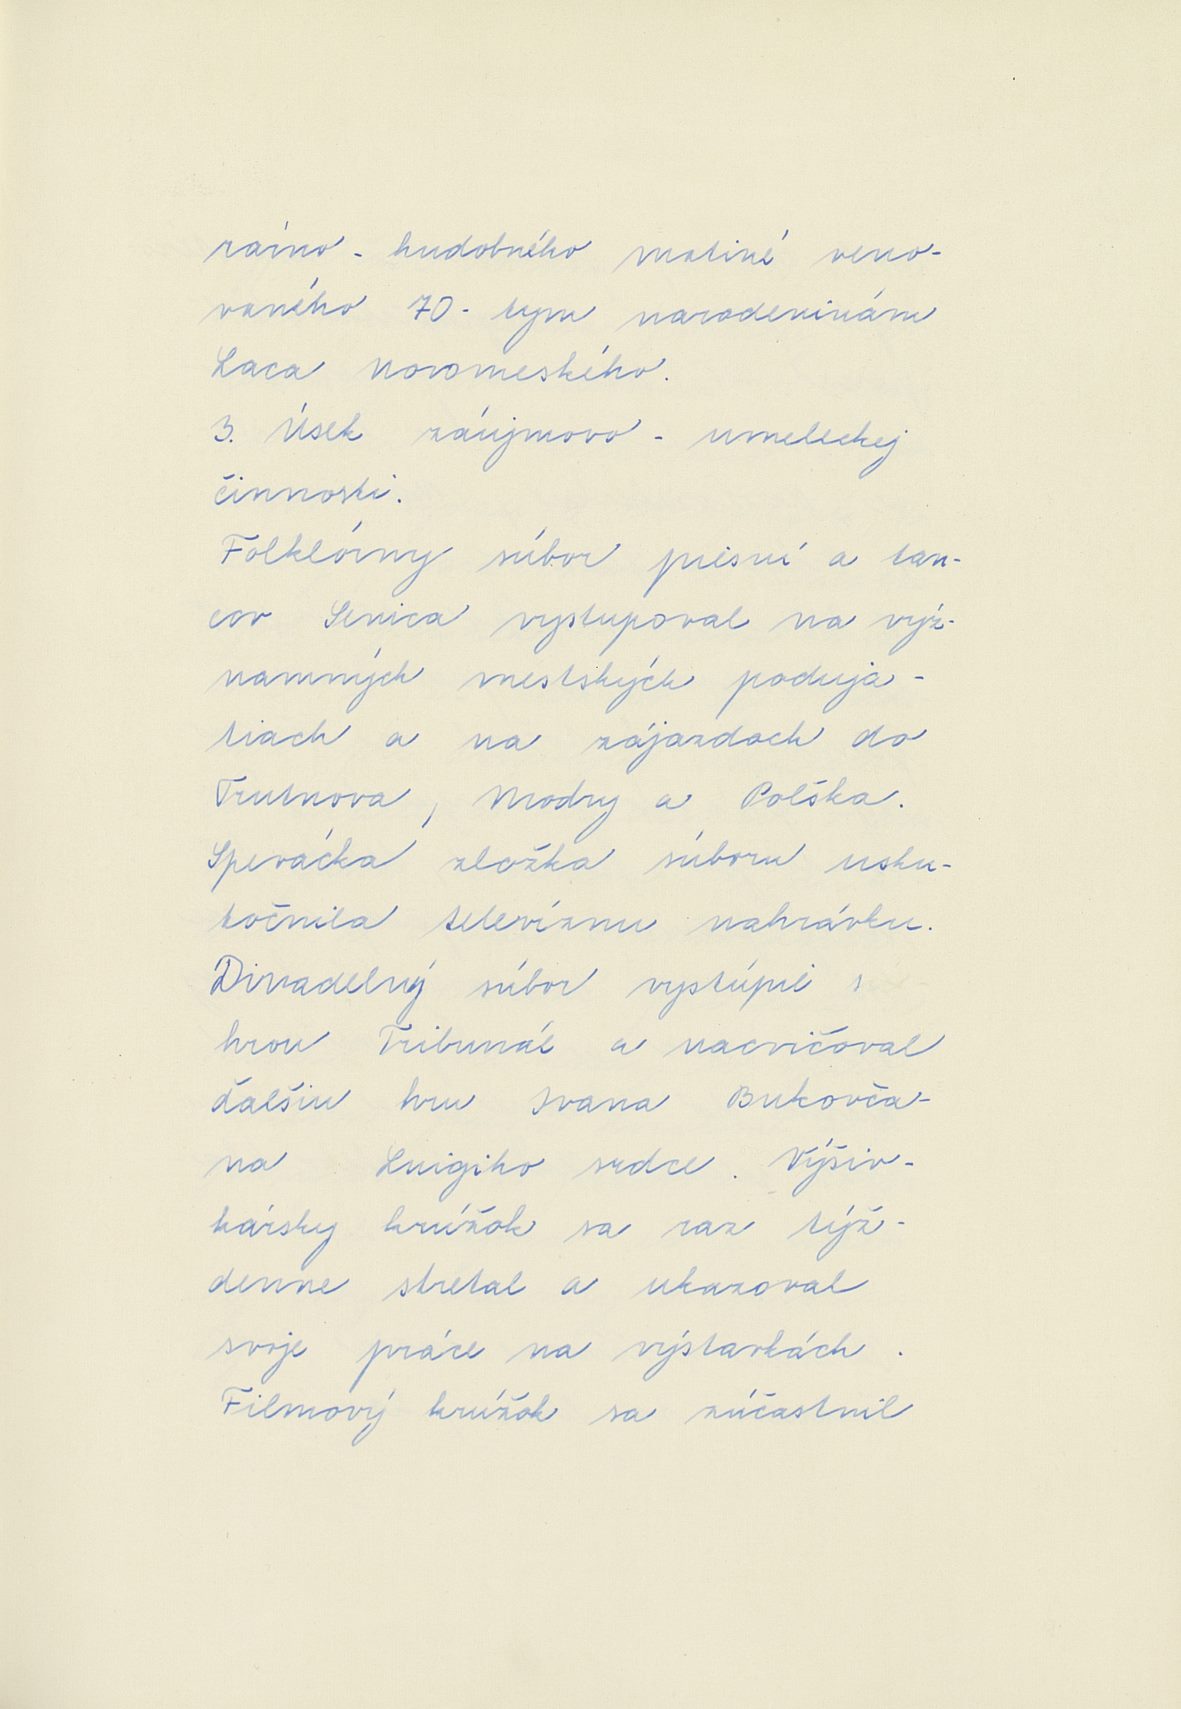 rárno - hudobného matiné veno-
vaného 70 - tym narodeninám
Laca Novomeského.
3. Úsek záujmovo - umeleckej
činnosti.
Folklórny súbor piesní a tan-
cov Senica vystupoval na výz-
namných mestských poduja -
tiach a na zájazdoch do
Trutnova, Modry a Polška.
Spevácka zložka súboru usku-
točnila televíznu nahrávku.
Divadelný súbor vystúpil s
hrou Tribunál a nacvičoval
ďalšiu hru Ivana Bukovča-
na Luigiho srdce. Výšiv-
kársky krúžok sa raz týž-
denne stretal a ukazoval
svoje práce na výstavkách.
Filmový krúžok sa zúčastnil